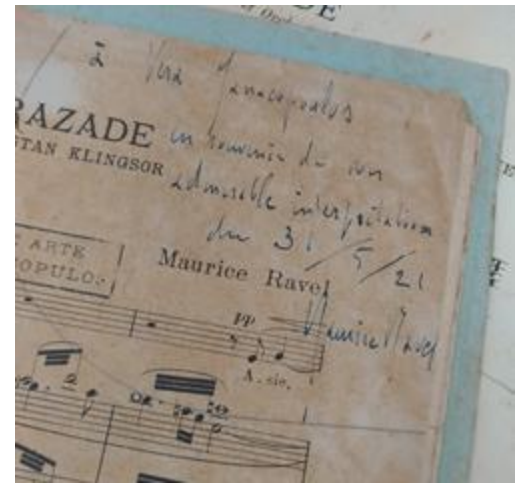 DE
à Vera Janacopoulos
RAZADE
en souvenir de son
TAN KLINGSOR
admirable interprétation
du 31/5/21
ARTE
OPULO.
Maurice Ravel
Maurice Ravel
pp
A. sie,